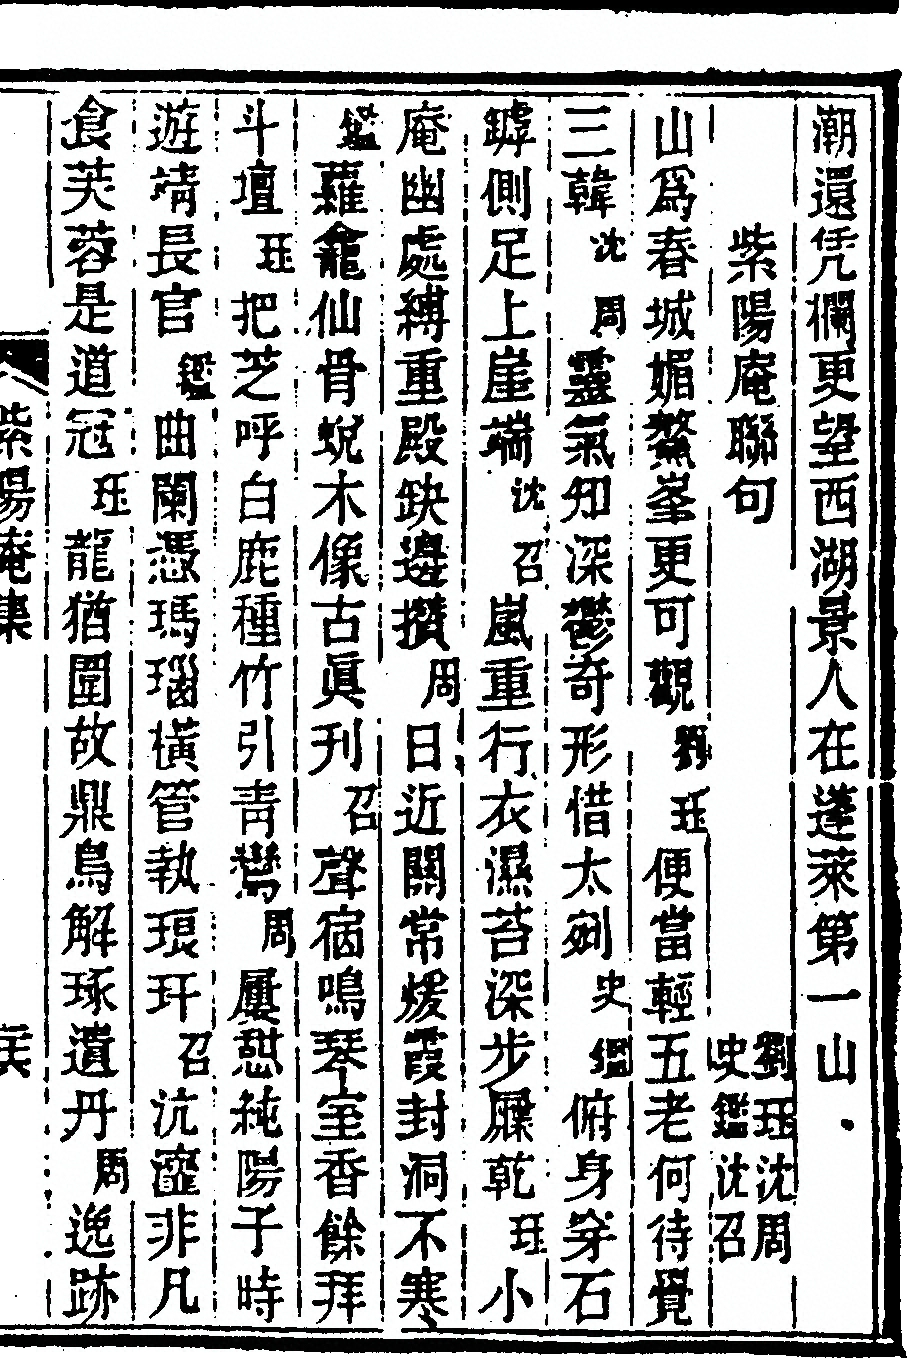 潮還凭欄更望西湖景人在蓬萊第一山
紫陽庵聯句
劉珏沈周
史鑑沈召
山爲春城媚鰲峯更可觀劉珏便當輕五老何待覺
三韓沈周靈氣知深鬱奇形借太剜史鑑俯身穿石
罅側足上崖端沈召嵐重行衣濕苔深步屧乾珏小
庵幽處縛重殿缺邊攢周日近關常煖霞封洞不寒
鑑蘿龕仙骨蛻木像古眞刋召聲宿鳴琴室香餘拜
斗壇珏把芝呼白鹿種竹引青鸞周屢愁純陽子時
遊靖長官鑑曲闌憑瑪瑙橫管執琅玕召沆瀣非凡
食芙蓉是道冠珏龍猶圍故鼎鳥解琢遺丹周逸跡
紫陽庵集